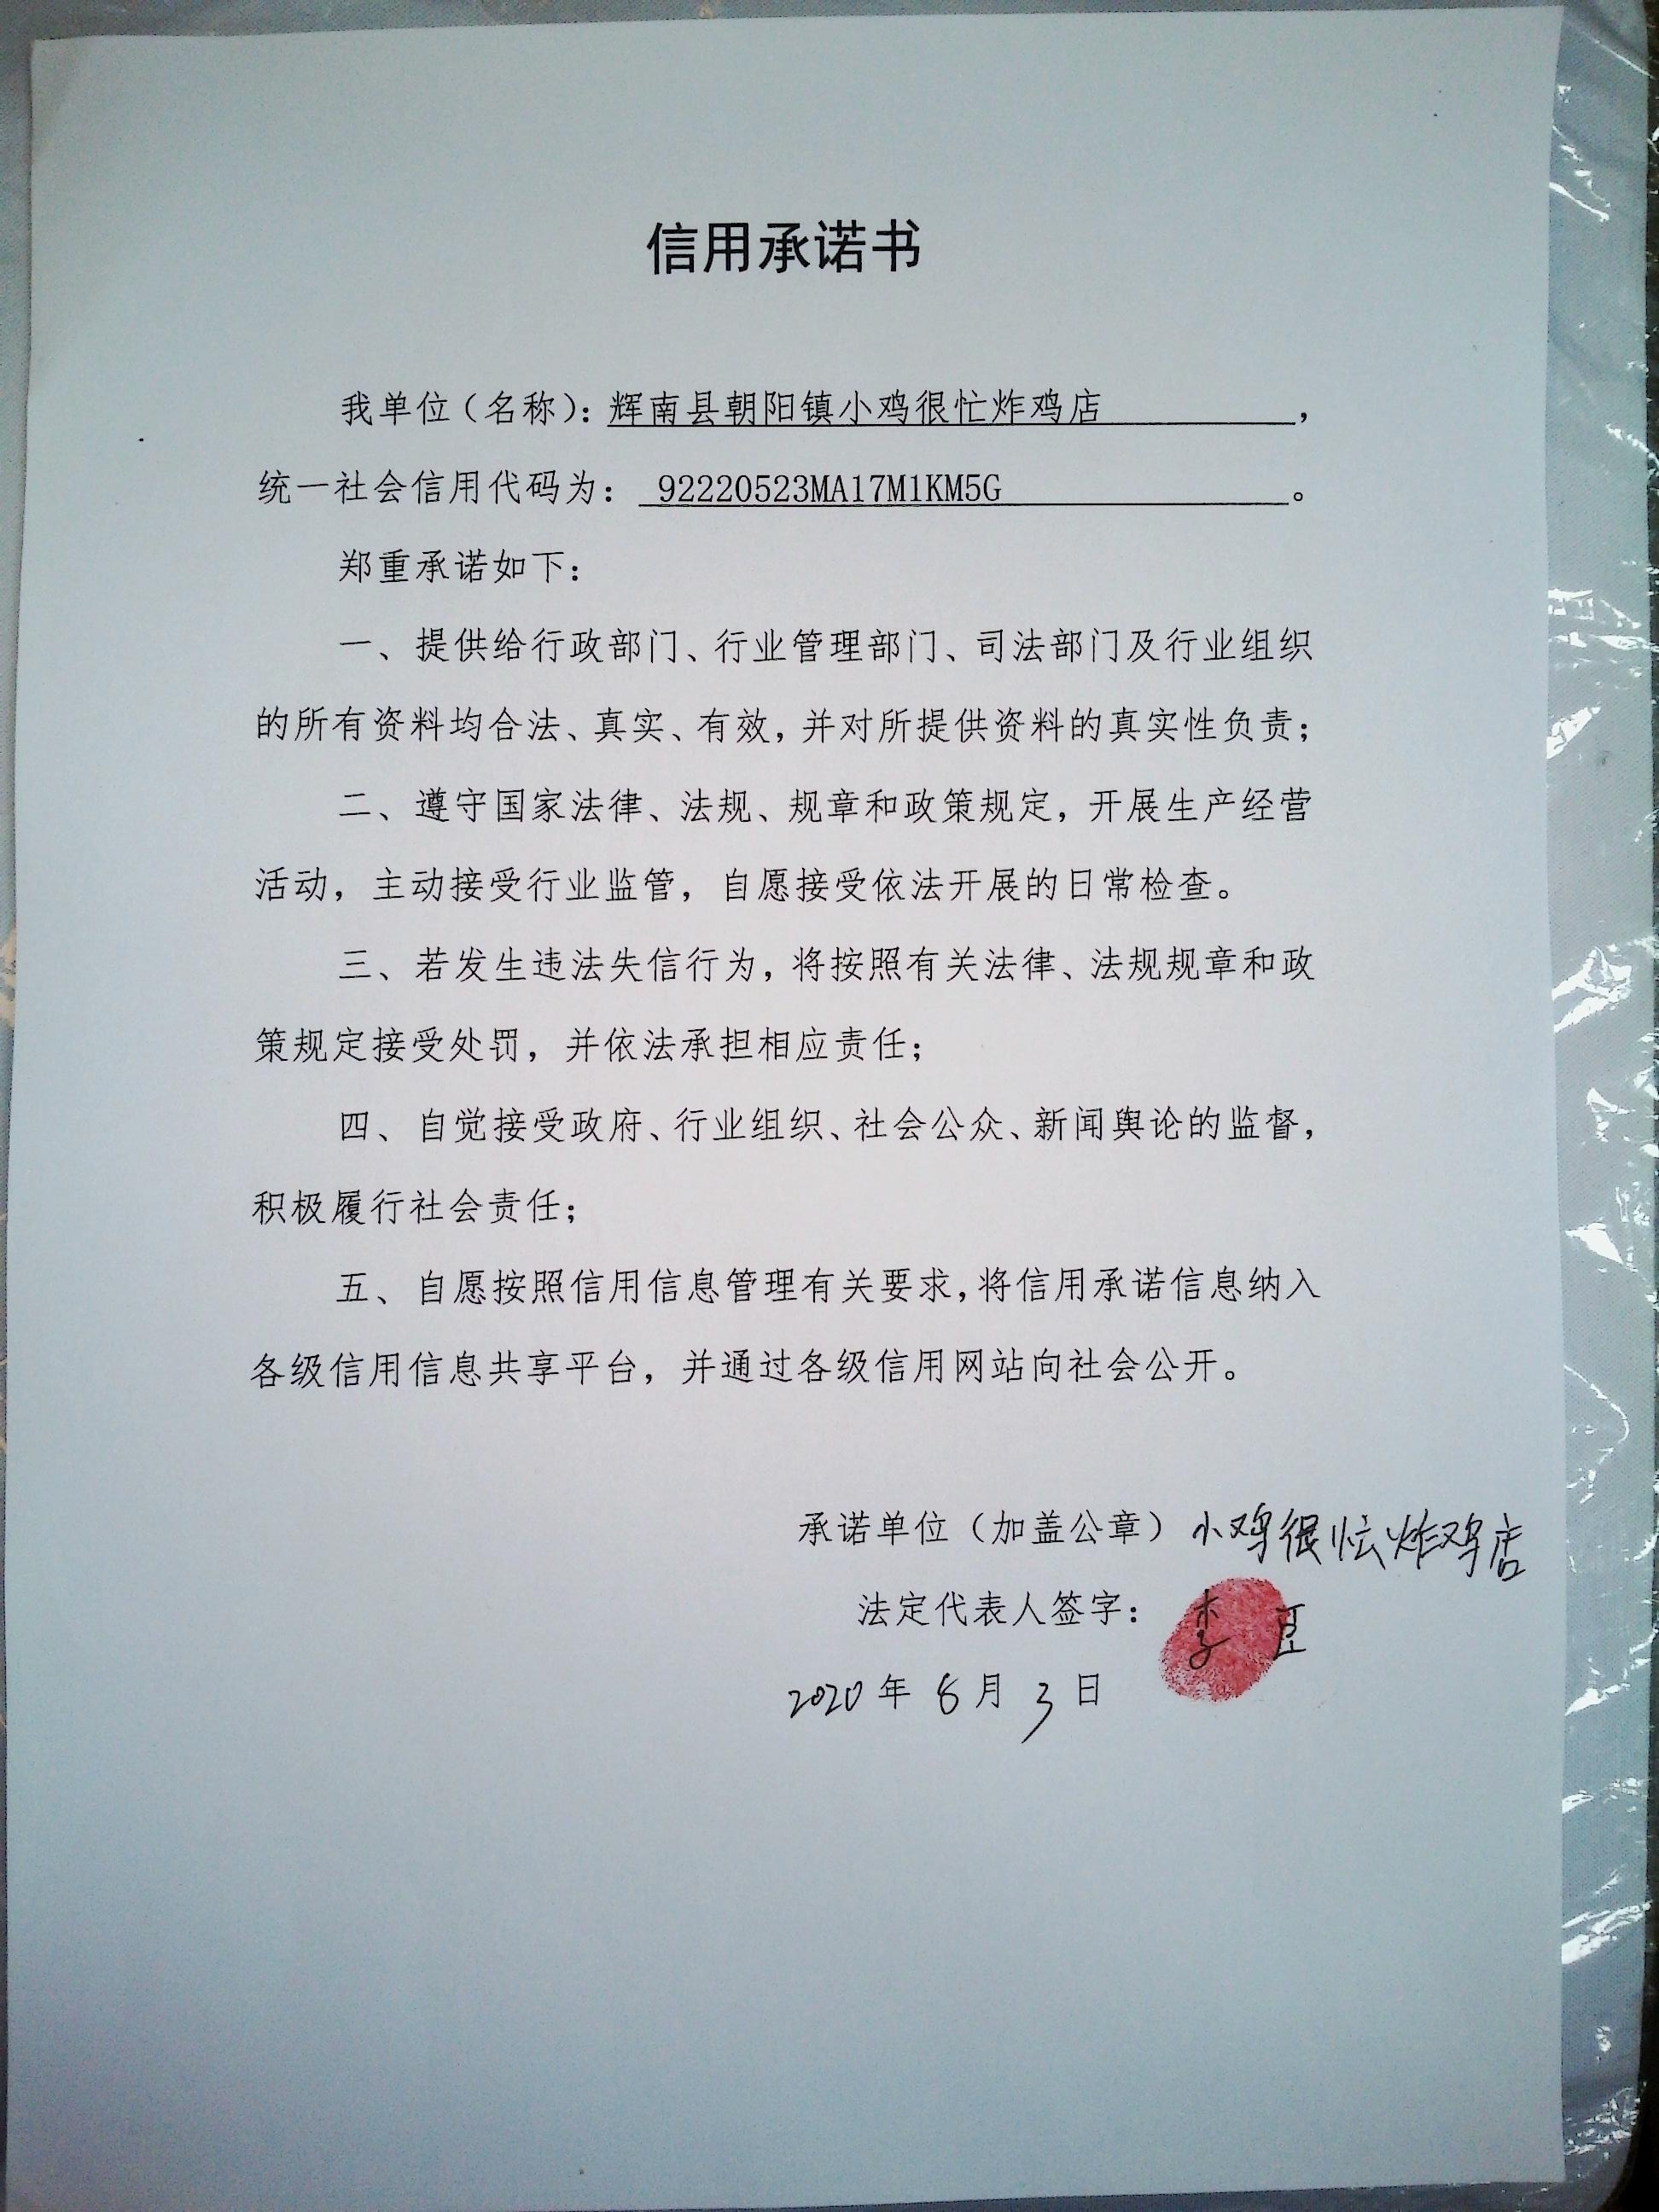 信用承诺书
我单位（名称）：辉南县朝阳镇小鸡很忙炸鸡店，
统一社会信用代码为：92220523MA17M1KM5G。
郑重承诺如下：
一、提供给行政部门、行业管理部门、司法部门及行业组织
的所有资料均合法、真实、有效，并对所提供资料的真实性负责；
二、遵守国家法律、法规、规章和政策规定，开展生产经营
活动，主动接受行业监管，自愿接受依法开展的日常检查。
三、若发生违法失信行为，将按照有关法律、法规规章和政
策规定接受处罚，并依法承担相应责任；
四、自觉接受政府、行业组织、社会公众、新闻舆论的监督，
积极履行社会责任；
五、自愿按照信用信息管理有关要求，将信用承诺信息纳入
各级信用信息共享平台，并通过各级信用网站向社会公开。
承诺单位（加盖公章）小鸡很忙炸鸡店
法定代表人签字：李
2020年8月3日